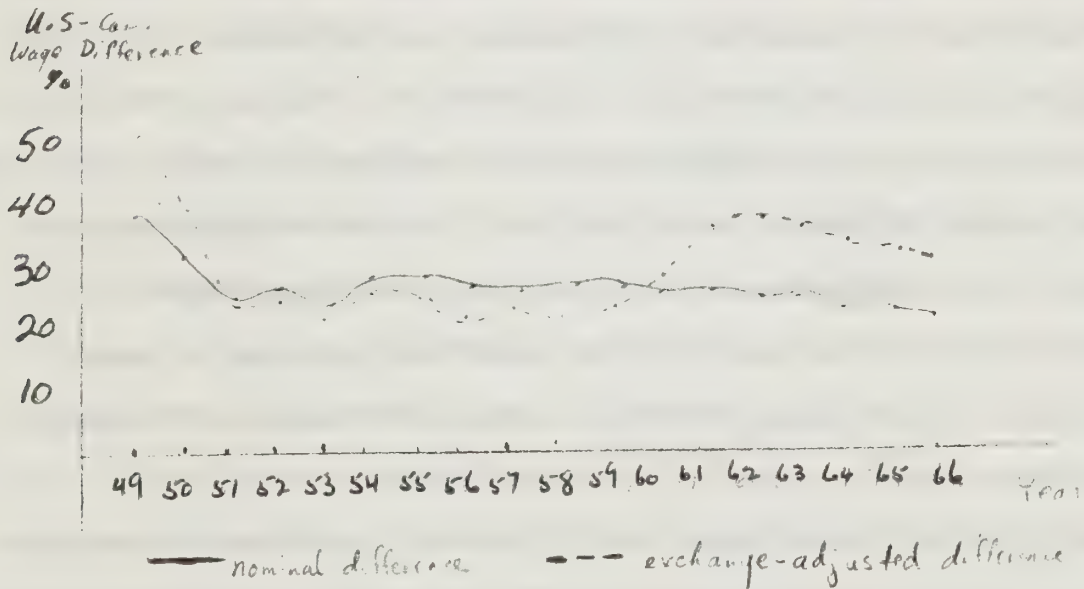 U.S-Can.
Wage Difference
%
50
40
30
20
10
49 50 51 52 53 54 55 56 57 58 59 60 61 62 63 64 65 66 Year
nominal difference exchange-adjusted difference